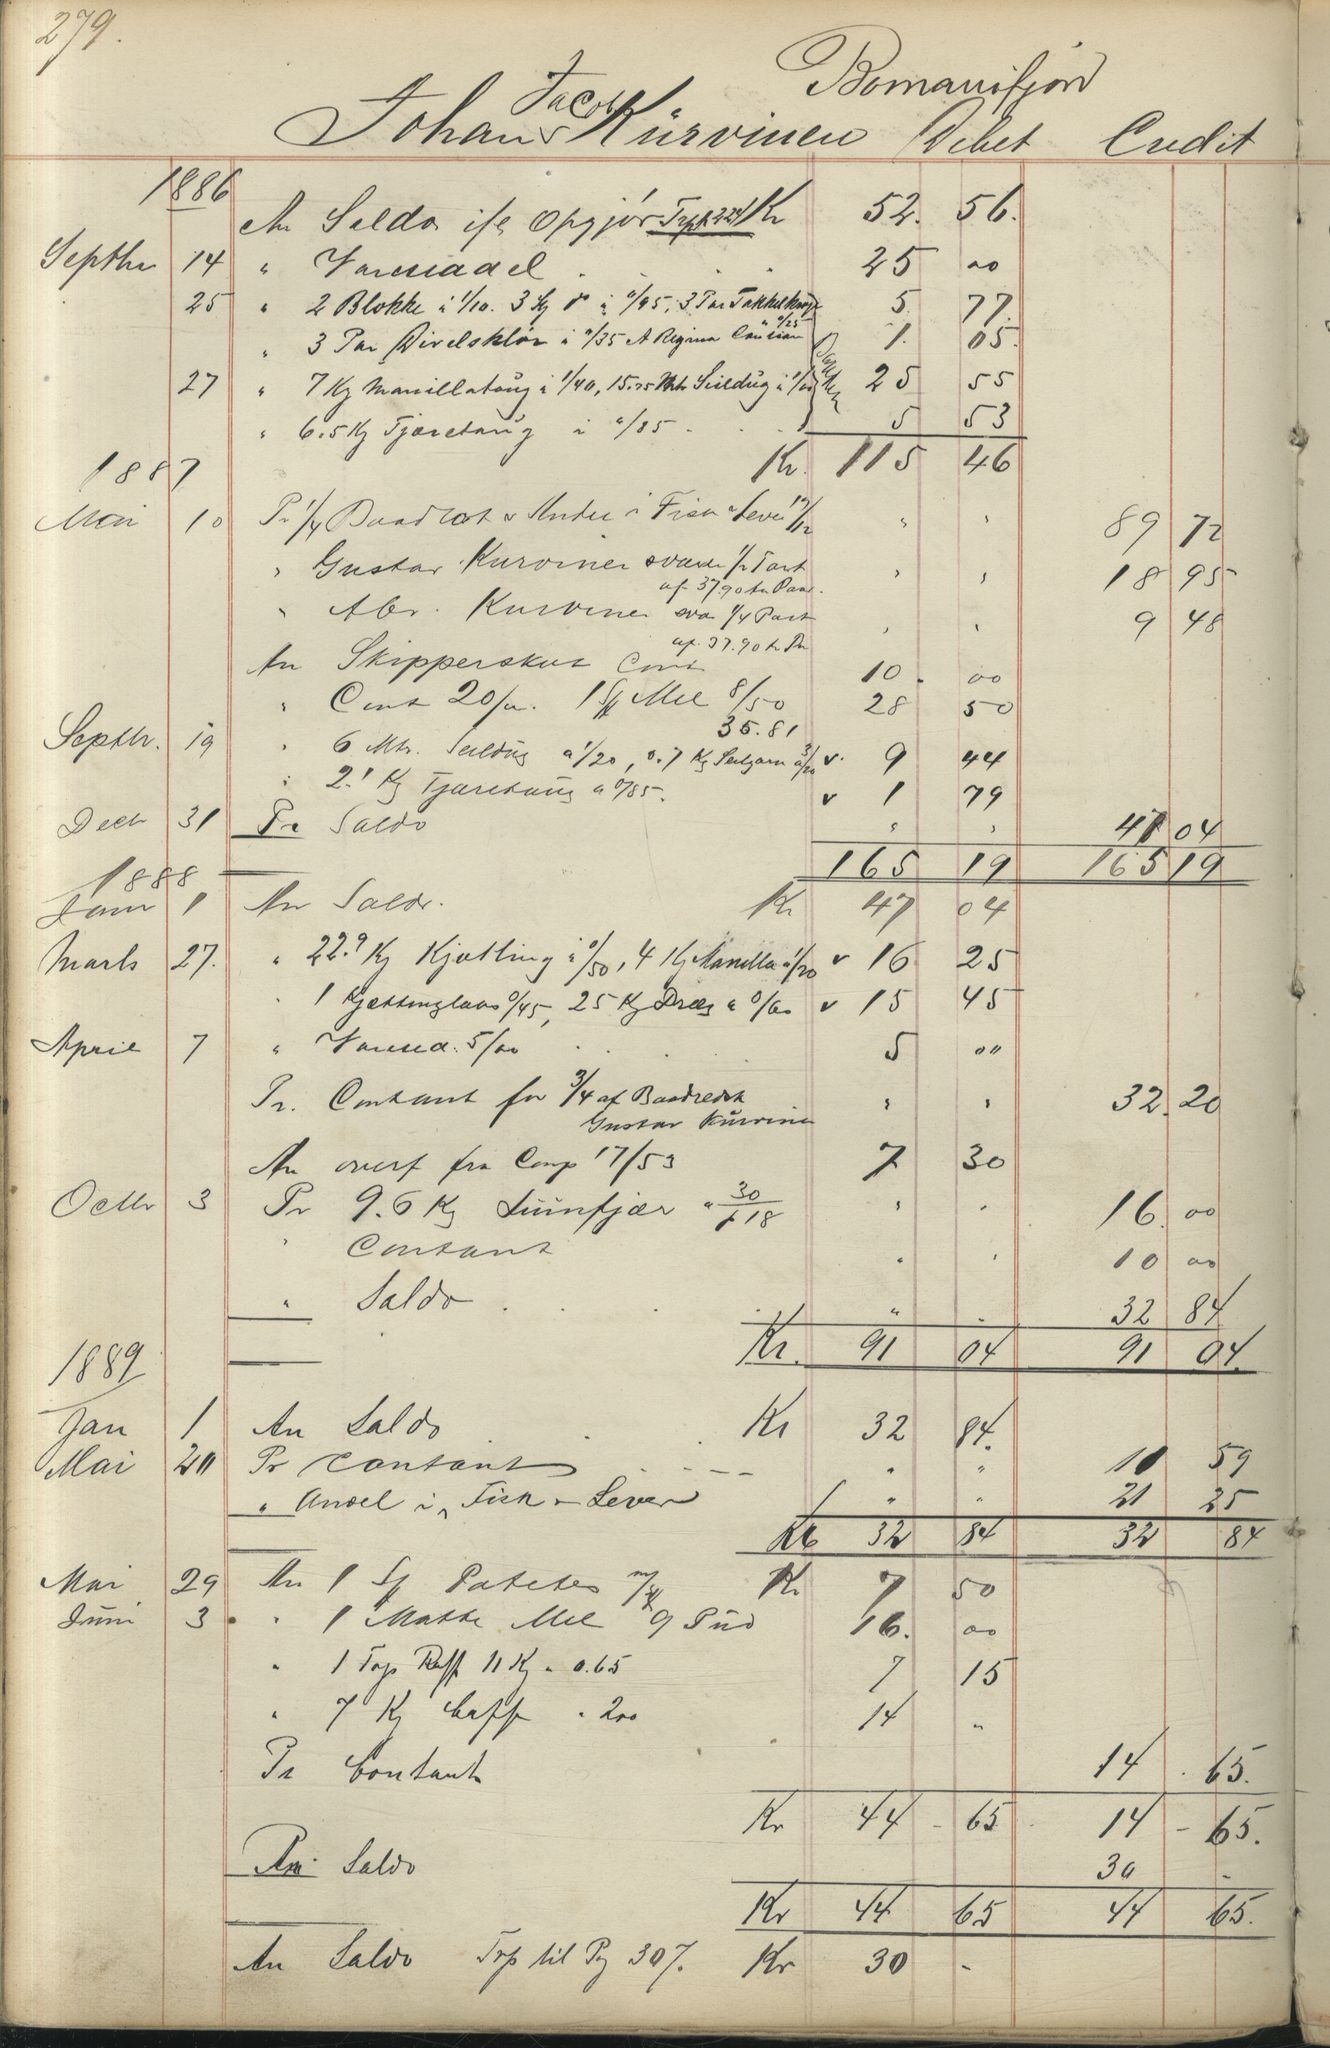 279.
Bomanifjord
Jacob
Johan Kürvinen Debet Credit
1886
An Saldo ifl Opgjör Trp p 224 Kr 52. 56.
Septbr 14 " Varesaddel 25 00
25 " 2 Blokke à 1/10. 3 Kg do à 0/45, 3 Par 0/25 5. 77.
" 3 Par à 0/35 A Regina 1. 05.
27 " 7 Kg Manillataug à 1/40, 15.75 Mtr Seildug à 1/ 25 55
" 6.5 Kg Tjæretaug à 0/85 5 53
1887 Kr. 115 46
Mai 10 Pr 1/4 Andel i Fisk & Lever " " 89 72
" Gustav Kurvinen svarer 1/2 Part " " 18 95
af 37.90
" Abr. Kurvinen sva 1/4 Part " " 9 48
af 37.90
An Skipperskat Cont 10. 00
" Cont 20/00. 1 Sk Mel 8/50 28 50
35.81
Septbr. 19 " 6 Mtr. Seildug a 1/20, 0.7 Kg Seilgarn a 3/20 v. 9 44
" 2.1 Kg Tjæretaug a 0/85. v 1 79
Decb 31 Pr Saldo " " 47 04
165 19 165 19
1888
Janr 1 An Saldo. Kr 47 04
Marts 27. " 22.9 Kg Kjætting à 0/50, 4 Kg Manilla à 1/20 v 16 25
" 1 Kjættinglaas 0/45, 25 Kg Dræg a 0/60 v 15 45
April 7 " Varesd. 5/00 5 00
Pr. Contant for 3/4 af Baadredsk " " 32. 20
Gustav Kürvinen
An overf fra Comp 17/53 7 30
Octbr 3 Pr 9.6 Kg " 30/18 " " 16. 00
" Contant " " 10 00
" Saldo " " 32 84
Kr. 91 04 91 04.
1889
Jan 1 An Saldo Kr 32 84.
Mai 20 Pr Contant " " 11 59
" Andel i Fisk & Lever " " 21 25
Kr 32 84 32 84
Mai 29 An 1 Sk Poteter Kr 7 50
Juni 3 " 1 Matte Mel 9 Pud 16. 00
" 1 Top Raff 11 Kg " 0.65 7 15
" 7 Kg Caffe " 200 14 "
Pr Contant 14 . 65.
Kr 44 - 65 14 - 65.
Pr Saldo 30 -
Kr 44 65 44 65.
An Saldo Trp til Pg 307. Kr 30 -